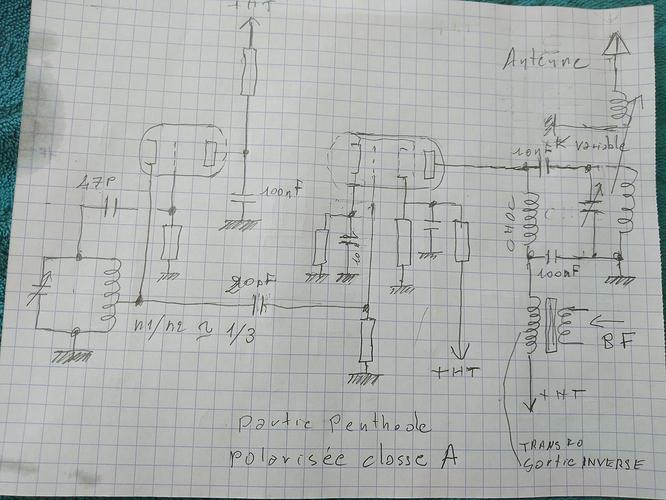 +HT
Antenne
K variable
10nF
47P
100nF
10n
20pF
100nF
n1/n2 ≃ 1/3
BF
+HT
+HT
Partie Penthode
polarisée classe A
TRANSFO
Sortie INVERSE